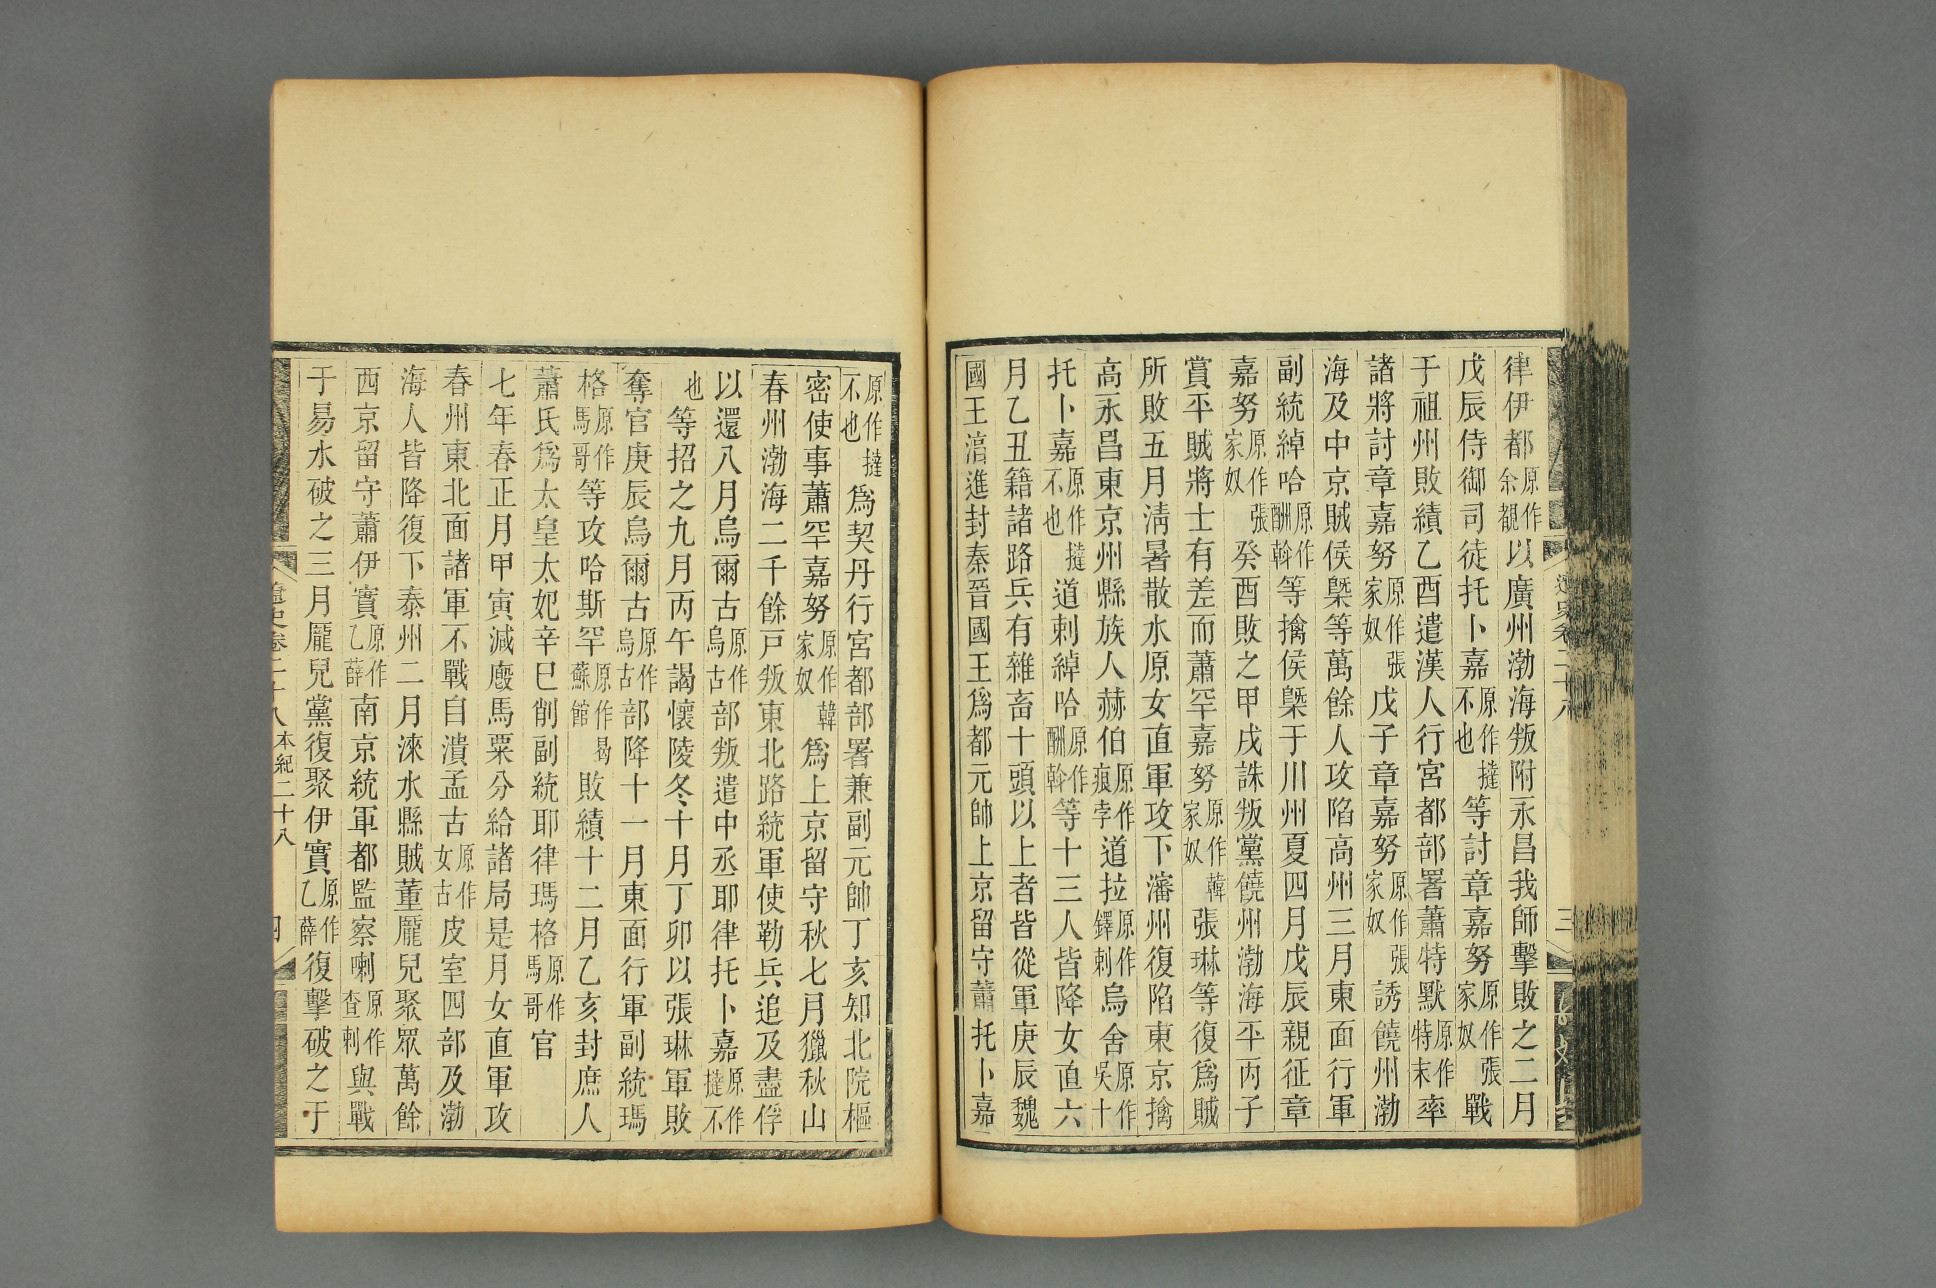 律伊都原作余覩以廣州渤海叛附永昌我師擊敗之二月
戊辰侍御司徒托卜嘉原作撻不也等討章嘉努原作張家奴戰
于祖州敗績乙酉遣漢人行宮都部署蕭特默原作特末率
諸將討章嘉努原作張家奴戊子章嘉努原作張家奴誘饒州渤
海及中京賊侯槩等萬餘人攻陷高州三月東面行軍
副統綽哈原作酬斡等擒侯槩于川州夏四月戊辰親征章
嘉努原作張家奴癸酉敗之甲戌誅叛黨饒州渤海平丙子
賞平賊將士有差而蕭罕嘉努原作韓家奴張琳等復爲賊
所敗五月清暑散水原女直軍攻下瀋州復陷東京擒
高永昌東京州縣族人赫伯原作痕孛道拉原作鐸剌烏舍原作吳十
托卜嘉原作撻不也道剌綽哈原作酬斡等十三人皆降女直六
月乙丑籍諸路兵有雜畜十頭以上者皆從軍庚辰魏
國王湻進封秦晉國王爲都元帥上京留守蕭托卜嘉
遼史卷二十八 三
原作撻不也爲契丹行宮都部署兼副元帥丁亥知北院樞
密使事蕭罕嘉努原作韓家奴爲上京留守秋七月獵秋山
春州渤海二千餘戸叛東北路統軍使勒兵追及盡俘
以還八月烏爾古原作烏古部叛遣中丞耶律托卜嘉原作撻不
也等招之九月丙午謁懷陵冬十月丁卯以張琳軍敗
奪官庚辰烏爾古原作烏古部降十一月東面行軍副統瑪
格原作馬哥等攻哈斯罕原作曷蘇館敗績十二月乙亥封庶人
蕭氏爲太皇太妃辛巳削副統耶律瑪格原作馬哥官
七年春正月甲寅減廄馬粟分給諸局是月女直軍攻
春州東北面諸軍不戰自潰孟古原作女古皮室四部及渤
海人皆降復下泰州二月淶水縣賊董龐兒聚眾萬餘
西京留守蕭伊實原作乙薛南京統軍都監察喇原作查剌與戰
于易水破之三月龐兒黨復聚伊實原作乙薛復擊破之于
遼史卷二十八 本紀二十八 四